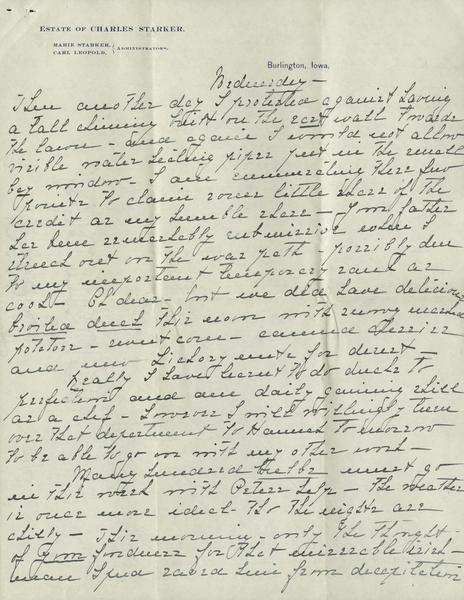 ESTATE OF CHARLES STARKER.
MARIE STARKER,
CARL LEOPOLD, } ADMINISTRATORS.
Burlington, Iowa,
Wednesday -
Then another day I protested against having
a tall chimney built on the east wall towards
the lawn - and again I would not allow
visible water heating pipes put in the small
bay window - I am enumerating these few
points to claim some little share of the
credit as my humble share - Your father
has been remarkably submissive when I
struck out on the war path - possibly due
to my important temporary rank as
cook - Oh dear - but we did have delicious
broiled duck this noon with mashed
potatoes - sweet corn - canned cherries
and hickory nuts for desert -
Really I have learnt to do ducks to
perfection and am daily gaining skill
as a chef - however I will willingly turn
over that department to Hannah tomorrow
to be able to go on with my other work -
Many hundred bulbs must go
in this week with Peters help - The weather
is once more ideal - tho the nights are
chilly - This morning only the thought
of your fondness for that miserable irish-
man Spud saved him from decapitation